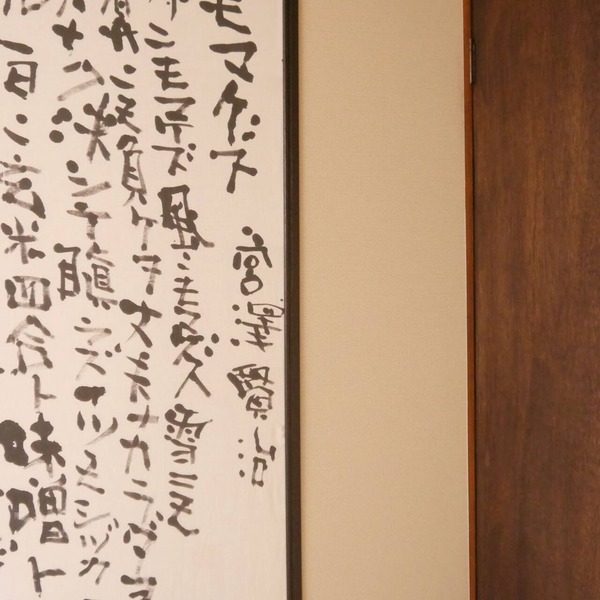 モマケズ 宮澤賢治
ニモマケズ風ニモマケズ雪ニモ
サニモ負ケヌ丈夫ナカラダヲ
ナク決シテ瞋ラズイツモシヅカ
一日ニ玄米四合ト味噌ト